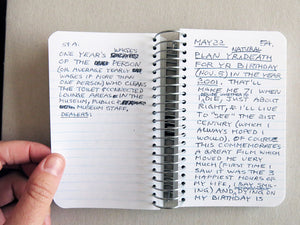 57A.
ONE YEAR'S WAGES
OF THE PERSON
(OR AVERAGE YEARLY
WAGES IF MORE THAN
ONE PERSON) WHO CLEANS
THE TOILET & CONNECTED
LOUNGE AREAS IN THE
MUSEUM, PUBLIC
MUSEUM STAFF,
DEALERS.
MAY 22. 57.
NATURAL
PLAN YR DEATH
FOR YR BIRTHDAY
(NOV. 5) IN THE YEAR
2001. THAT'LL
MAKE ME 71 WHEN
I DIE, JUST ABOUT
RIGHT, & I'LL LIVE
TO "SEE" THE 21ST
CENTURY (WHICH I
ALWAYS HOPED I
WOULD). OF COURSE
THIS COMMEMORATES
A GREAT FILM WHICH
MOVED ME VERY
MUCH (FIRST TIME I
SAW IT WAS THE 3
HAPPIEST HOURS OF
MY LIFE, I SAY,
AND, DYING ON
MY BIRTHDAY IS